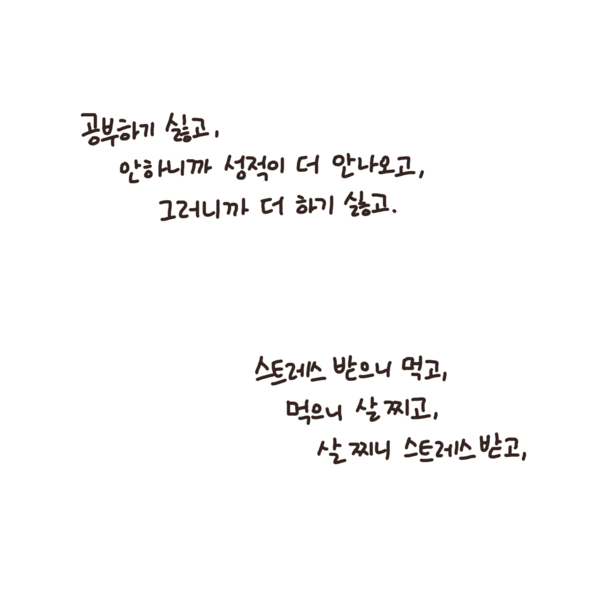 공부하기 싫고,
안하니까 성적이 더 안나오고,
그러니까 더 하기 싫고.
스트레스 받으니 먹고,
먹으니 살 찌고,
살 찌니 스트레스 받고,